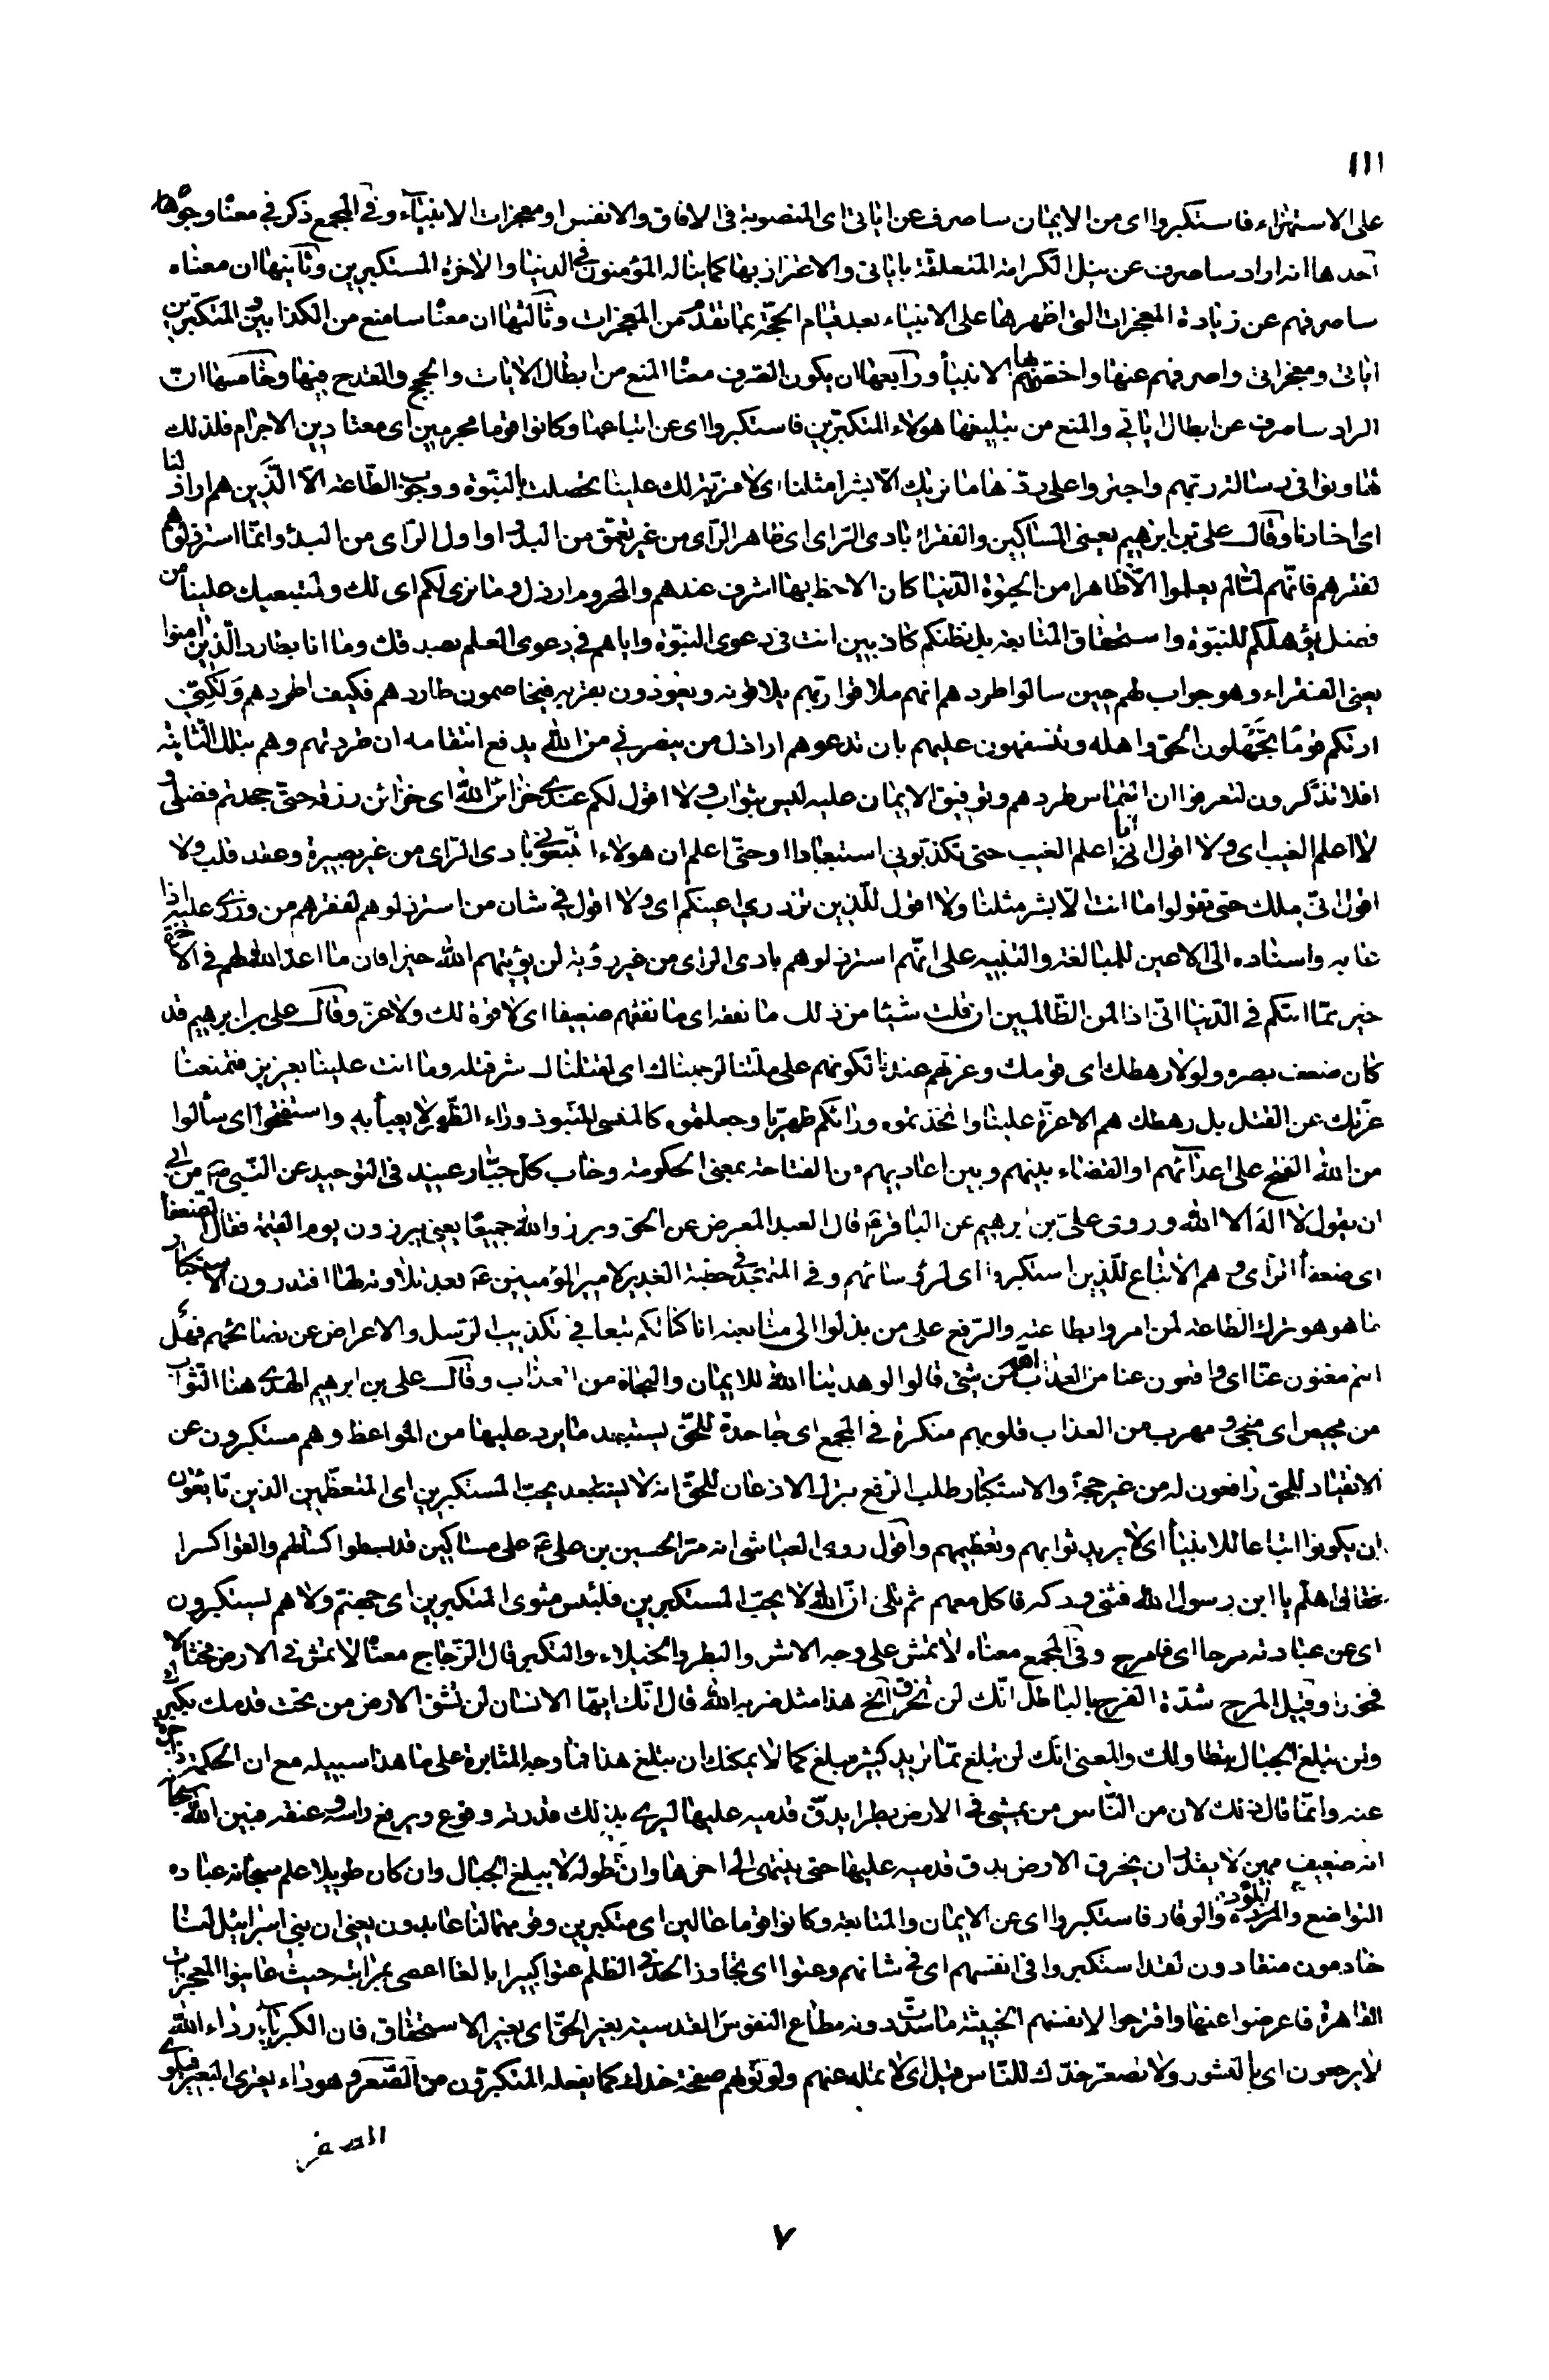 ١١١
على الاستهزاء فاستكبروا اى من الايمان ساصرف عن اياتى اى المنصوبة فى الافاق والانفس او معجزات الانبياء وفى المجمع ذكر فى معناه وجوها
احدها انه اراد ساصرف عن نيل الكرامة المتعلقة باياتى والاعتزاز بها كما يناله المؤمنون فى الدنيا والاخرة المستكبرين وثانيها ان معناه
ساصرفهم عن زيادة المعجزات التى اظهرها على الانبياء بعد قيام الحجّة بما تقدم من المعجزات وثالثها ان معناه سامنع من الكذابين والمتكبرين
اياتى ومعجزاتى واصرفهم عنها واخصّ بها الانبياء ورابعها ان يكون الصرف معناه المنع من ابطال الايات والحجج والقدح فيها وخامسها ان
المراد ساصرف عن ابطال اياتى والمنع من تبليغها هؤلاء المتكبّرين فاستكبروا اى عن اتباعها وكانوا قوما مجرمين اى معتادين الاجرام فلذلك
تهاونوا فى رسالة ربّهم واجتروا على ردّها ما نريك الّا بشرا مثلنا اى لا مزيّة لك علينا تخصك بالنبّوة ووجوب الطّاعة الّا الّذين هم اراذلنا
اى اخسّاؤنا وقال على بن ابرهيم يعنى المساكين والفقراء بادى الرّاى اى ظاهر الرّاى من غير تعمّق من البدوّ او اول الرّاى من البدؤ وانّما استرذلوهم
لفقرهم فانّهم لمّا لم يعلموا الّا ظاهرا من الحيوة الدّنيا كان الاحظ بها اشرف عندهم والمحروم ارذل وما نرى لكم اى لك ولمتبعيك علينا من
فضل يؤهلكم للنبّوة واستحقاق المتابعة بل نظنكم كاذبين انت فى دعوى النبّوة واياهم فى دعوى العلم بصدقك وما انا بطارد الّذين امنوا
يعنى الفقراء وهو جواب لهم حين سالوا طردهم انهم ملاقوا ربّهم يلاقونه ويفوزون بقربه فيخاصمون طاردهم فكيف اطردهم ولكنّى
اريكم قومًا تجهلون الحق واهله وتتسفهون عليهم بان تدعوهم اراذل من ينصرنى من الله يدفع انتقامه ان طردتهم وهم بتلك المثابة
افلا تذكّرون لتعرفوا ان التماس طردهم وتوقيف الايمان عليه ليس بثواب ولا اقول لكم عندى خزائن الله اى خزائن رزقه حتى جحدتم فضلى و
لا اعلم الغيب اى ولا اقول انا اعلم الغيب حتى تكذبونى استبعادا او حتّى اعلم ان هولاء اتبعونى بادى الرّاى من غير بصيرة وعقد قلب ولا
اقول انّى ملك حتى تقولوا ما انت الّا بشر مثلنا ولا اقول للّذين تزدرى اعينكم اى ولا اقول فى شان من استرذلوهم لفقرهم من زرى عليه اذا
عابه واسناده الى الاعين للمبالغة والتنبيه على انّهم استرذلوهم بادى الراى من غير رؤية لن يؤتيهم الله خيرا فان ما اعدّ الله لهم فى الاخرة
خير ممّا اتيكم فى الدّنيا انّى اذا لمن الظّالمين ان قلت شيئا من ذلك ما نفقه اى ما نفهم ضعيفا اى لا قوة لك ولا عزّ وقال على بن ابرهيم قد
كان ضعف بصره ولولا رهطك اى قومك وعزتهم عندنا لكونهم على ملّتنا لرجمناك اى لقتلناك شر قتلة وما انت علينا بعزيز فتمنعنا
عزّتك عن القتل بل رهطك هم الاعزّة علينا واتخذتموه ورائكم ظهريّا وجعلتموه كالمنسى المنبوذ وراء الظّهر لا يعبأ به واستفتحوا اى سألوا
من الله الفتح على اعدائهم او القضاء بينهم وبين اعاديهم من الفتاحة بمعنى الحكومة وخاب كل جبّار عنيد فى التوحيد عن النّبى ص من ابى
ان يقول لا اله الا الله وروى علىّ بن ابرهيم عن الباقر ع قال العنيد المعرض عن الحق وبرزوا لله جميعًا يعنى يبرزون يوم القيمة فقال الضعفاء
اى ضعفاء الراى وهم الاتباع للّذين استكبروا اى لرؤسائهم وفى المتهجّد فى خطبة الغدير لامير المؤمنين ع بعد تلاوته لها افتدرون الاستكبار
ما هو هو ترك الطاعة لمن امروا بطاعته والترفع على من ندبوا الى متابعته انا كنا لكم تبعا فى تكذيب الرّسل والاعراض عن نصائحهم فهل
انتم مغنون عنّا اى دافعون عنا من العذاب الله من شىء قالوا لو هدينا الله للايمان والنجاة من العذاب وقال على بن ابرهيم الهدى هنا الثواب
من محيص اى منجى ومهرب من العذاب قلوبهم منكرة فى المجمع اى جاحدة للحقّ يستبعد ما يرد عليها من المواعظ وهم مستكبرون عن
الانقياد للحق دافعون له من غير حجة والاستكبار طلب الترفع بترك الاذعان للحقّ انه لا يحبّ المستكبرين اى المتعظّمين الذين يأنفون
ان يكونوا اتباعا للانبياء اى لا يريد ثوابهم وتعظيمهم واقول روى العياشى انه مرّ الحسين بن على ع على مساكين قد بسطوا كساء لهم والقوا كسرا
فقالوا هلّم يا ابن رسول الله فثنى وركه فاكل معهم ثم تلى انّ الله لا يحبّ المستكبرين فلبئس مثوى المتكبرين اى جهنم ولا هم يستكبرون
اى عن عبادته مرحا اى ذا مرح وفى المجمع معناه لا تمش على وجه الاشر والبطر والخيلاء والتكبر قال الزّجاج معناه لا تمش فى الارض مختالا
فخورا وقيل المرح شدّة الفرح بالباطل انّك لن تخرق الخ هذا مثل ضربه الله قال انّك ايها الانسان لن تشق الارض من تحت قدمك بكبرك
ولن تبلغ الجبال بتطاولك والمعنى انّك لن تبلغ ممّا تريد كثير مبلغ كما لا يمكنك ان تبلغ هذا فما وجه المثابرة على ما هذا سبيله مع ان الحكمة زاجرة
عنه وانّما قال ذلك لان من النّاس من يمشى فى الارض بطرا يدقّ قدميه عليها ليرى بذلك قدرته وقوع ويرفع راسه وعنقه فبين الله سبحانه
انه ضعيف مهين لا يقدر ان يخرق الارض بدق قدميه عليها حتى ينتهى الى اخرها وان طوله لا يبلغ الجبال وان كان طويلا علم سبحانه عباده
التواضع والمروّة والوقار فاستكبروا اى عن الايمان والمتابعة وكانوا قوما عالين اى متكبرين وقومهما لنا عابدون يعنى ان بنى اسرائيل لنا
خادمون منقادون لقد استكبروا فى انفسهم اى فى شانهم وعتوا اى تجاوزوا الحد فى الظلم عتوا كبيرا بالغا اقصى مراتبه حيث عاينوا المعجزات
القاهرة فاعرضوا عنها واقترحوا لانفسهم الخبيثة ما سدّت دونه مطامح النفوس القدسية بغير الحقّ اى بغير الاستحقاق فان الكبرياء رداء الله
لا يرجعون اى بالنشور ولا تصعّر خدّك للنّاس اى لا تمله عنهم ولا تولهم صفحة خدك كما يفعله المتكبرون من الصّعر وهو داء يعترى البعير
٧